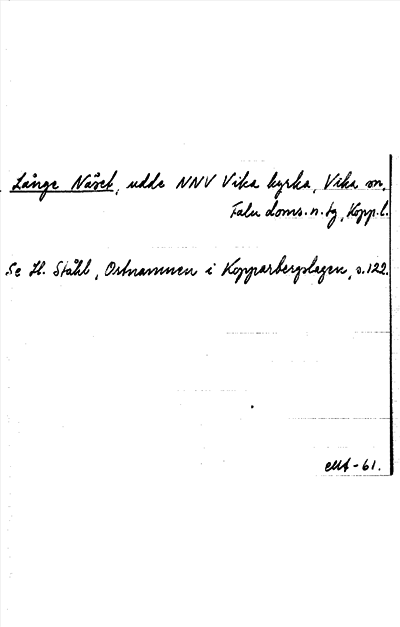 Långe Näset, udde NNV Vika kyrka, Vika sn,
Falu doms. n. tg, Kopp. l.
Se H. Ståhl, Ortnamnen i Kopparbergslagen, s. 122.
-61.